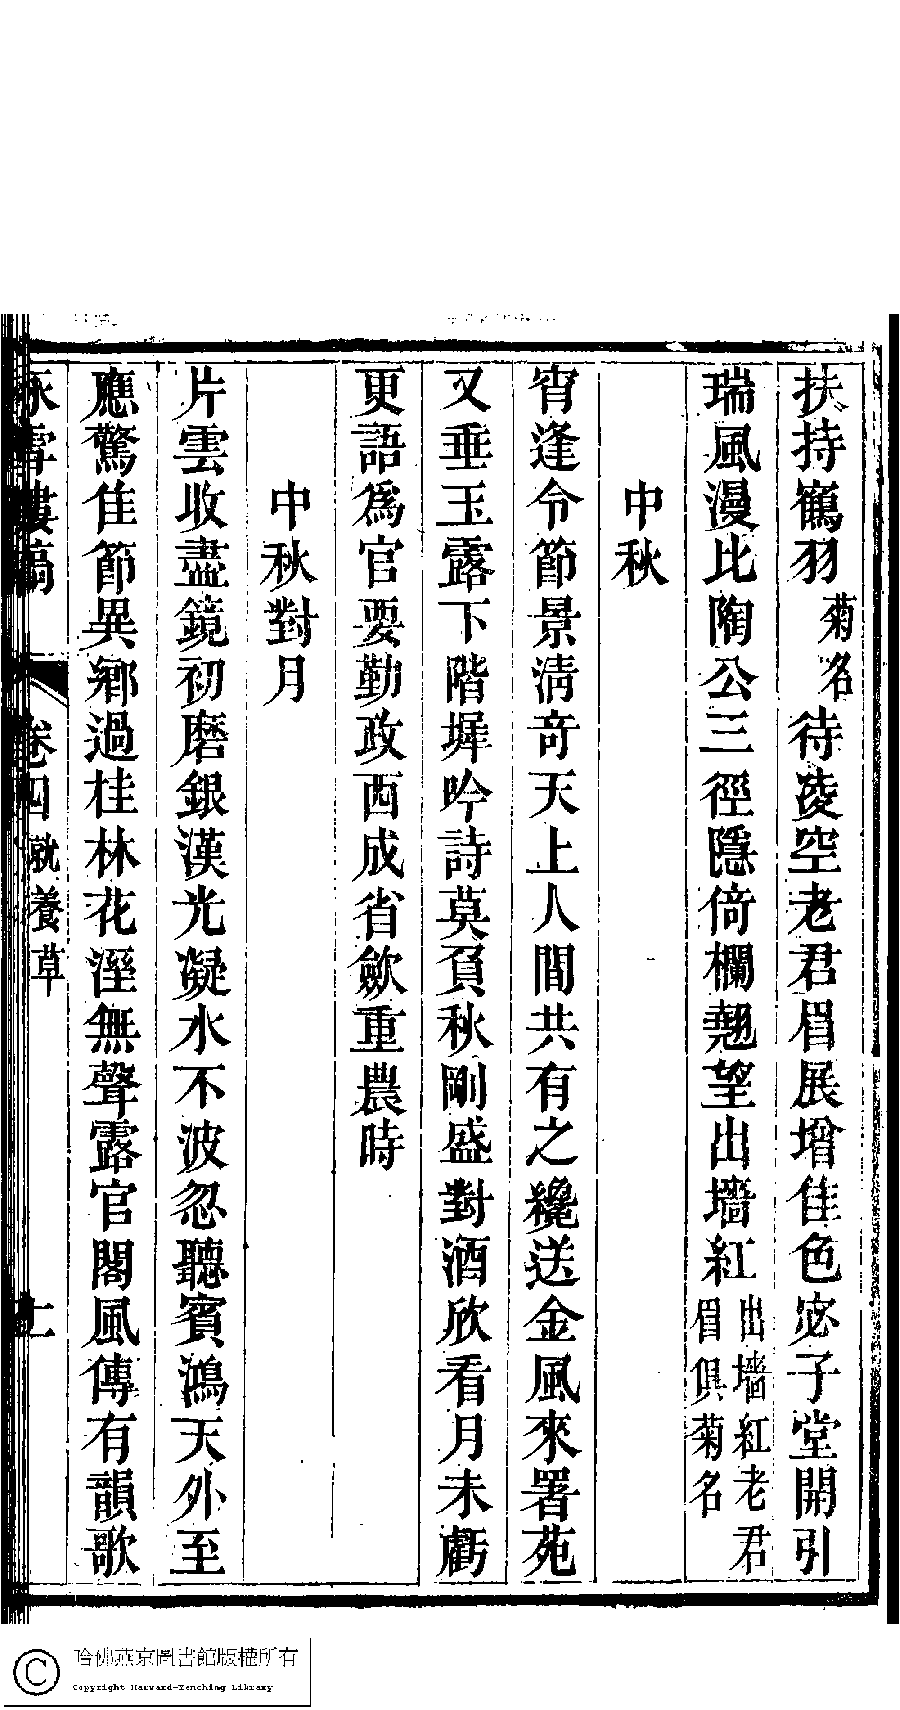 扶持鶴羽菊名待凌空老君眉展增佳色宓子堂開引
瑞風漫比陶公三徑隱倚欄翹望出墻紅出墻紅老君眉俱菊名
中秋
宵逢令節景淸奇天上人間共有之纔送金風來署苑
又垂玉露下階墀吟詩莫負秋剛盛對酒欣看月未虧
更語爲官要勤政西成省斂重農時
中秋對月
片雲收盡鏡初磨銀漢光凝水不波忽聽賓鴻天外至
應驚佳節異鄉過桂林花溼無聲露官閣風傳有韻歌
卷四就養草
哈佛燕京圖書館版權所有
Copyright Harvard-Yenching Library